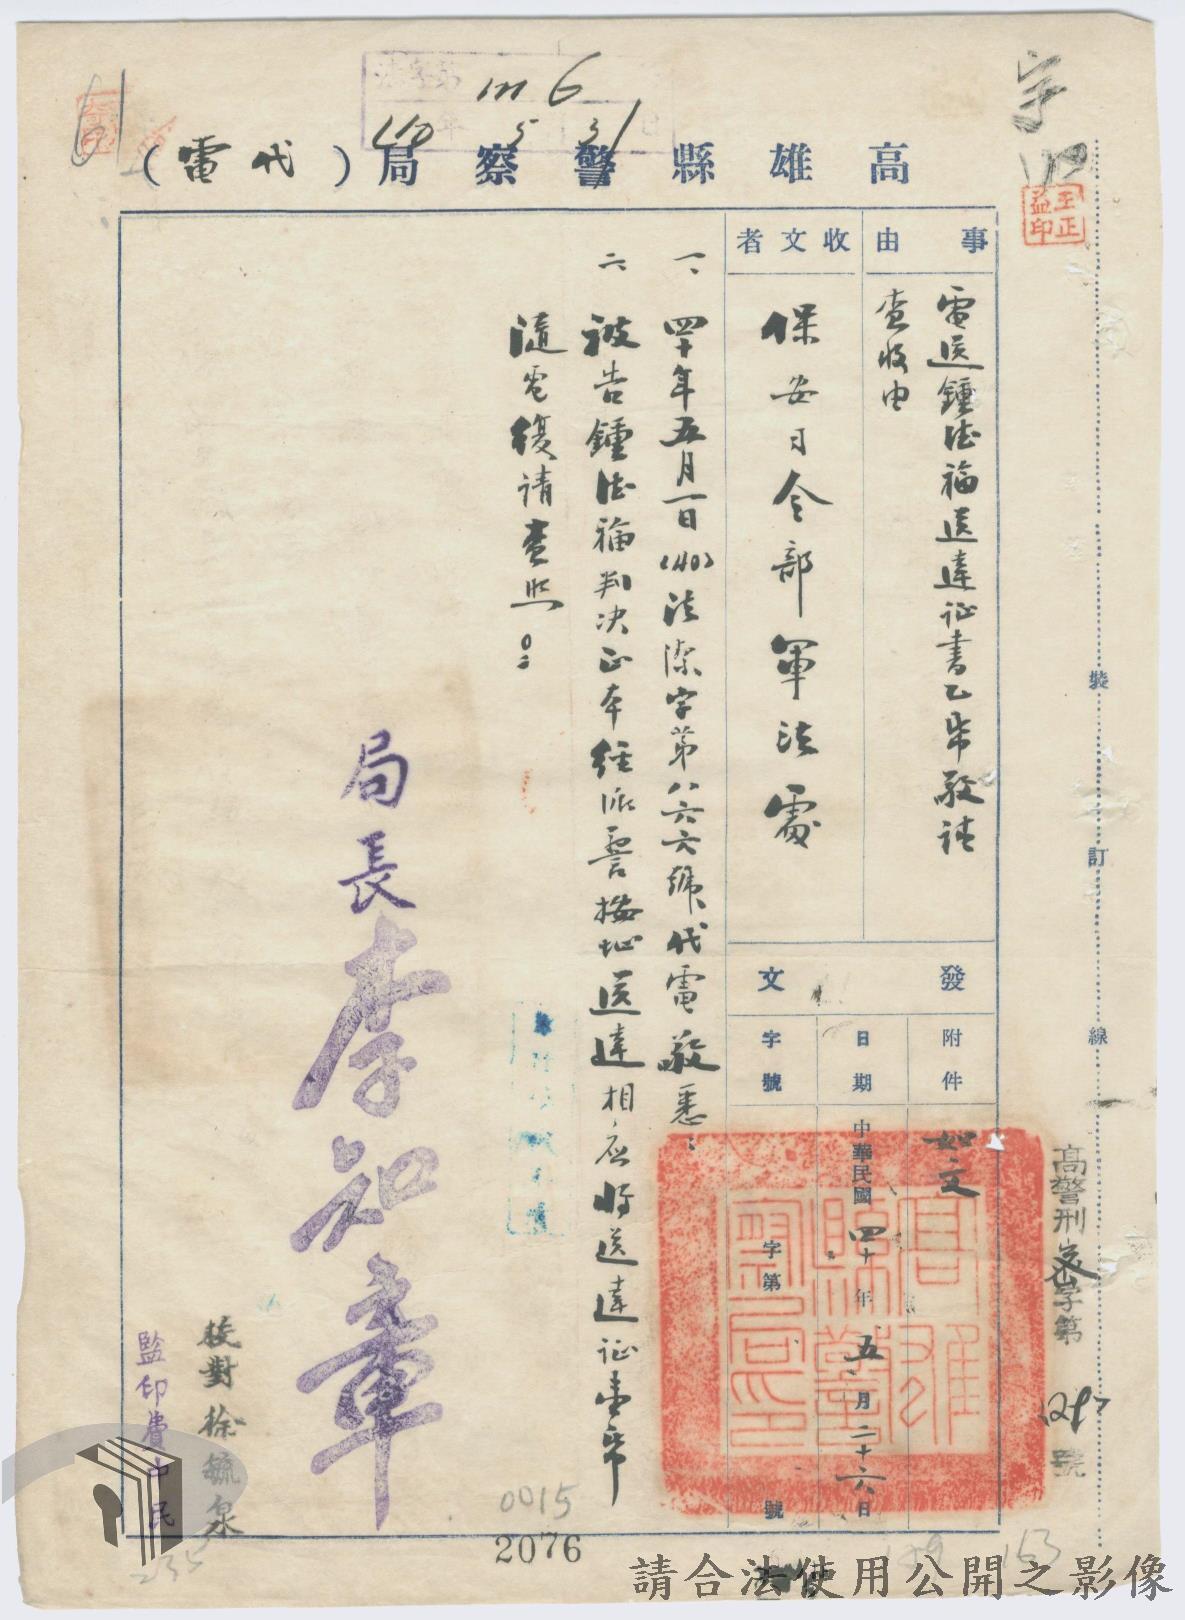 高雄縣警察局(代電)
事由
電送鍾德福送達证書乙帋敬請
查收由
收文者
保安司令部軍法處
發文
附件
如文
日期
中華民國四十年五月二十六日
字號
字第 號
高警刑 字第 號
一、四十年五月一日(40)法 字第八六六號代電敬悉:
二、被告鍾德福判決正本經派警按址送達相应將送達证壹帋
隨電復請查照。
局長李知章
校對徐毓泉
監印費中民
0015
2076
裝
訂
線
王正益印
6
40 5 31
153
235
請合法使用公開之影像